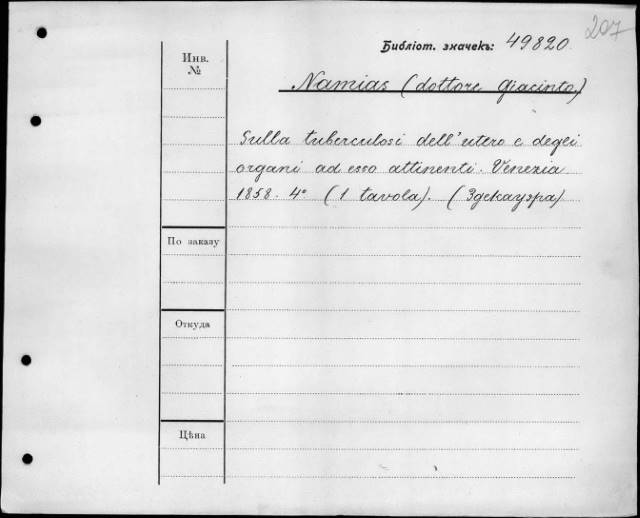 207
Библіот. значекъ: 49820
Инв.
№
Namias (dottore Giacinto)
Sulla tuberculosi dell'utero e degli
organi ad esso attinenti. Venezia
1858. 4° (1 tavola). (Здекауэра)
По заказу
Откуда
Цѣна